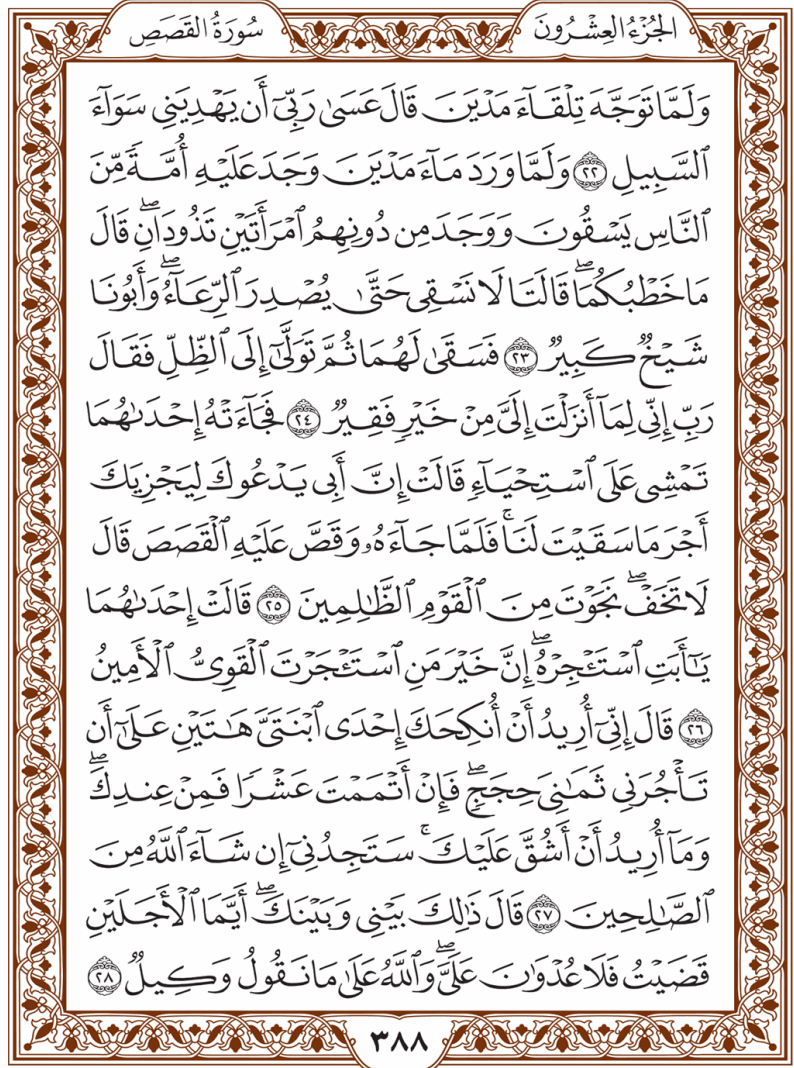 الجُزْءُ العِشْرُونَ
سُورَةُ القَصَصِ
وَلَمَّا تَوَجَّهَ تِلْقَآءَ مَدْيَنَ قَالَ عَسَىٰ رَبِّيٓ أَن يَهْدِيَنِي سَوَآءَ
ٱلسَّبِيلِ ٢٢ وَلَمَّا وَرَدَ مَآءَ مَدْيَنَ وَجَدَ عَلَيْهِ أُمَّةٗ مِّنَ
ٱلنَّاسِ يَسْقُونَ وَوَجَدَ مِن دُونِهِمُ ٱمْرَأَتَيْنِ تَذُودَانِۖ قَالَ
مَا خَطْبُكُمَاۖ قَالَتَا لَا نَسْقِي حَتَّىٰ يُصْدِرَ ٱلرِّعَآءُۖ وَأَبُونَا
شَيْخٞ كَبِيرٞ ٢٣ فَسَقَىٰ لَهُمَا ثُمَّ تَوَلَّىٰٓ إِلَى ٱلظِّلِّ فَقَالَ
رَبِّ إِنِّي لِمَآ أَنزَلْتَ إِلَيَّ مِنْ خَيْرٖ فَقِيرٞ ٢٤ فَجَآءَتْهُ إِحْدَىٰهُمَا
تَمْشِي عَلَى ٱسْتِحْيَآءٖ قَالَتْ إِنَّ أَبِي يَدْعُوكَ لِيَجْزِيَكَ
أَجْرَ مَا سَقَيْتَ لَنَاۚ فَلَمَّا جَآءَهُۥ وَقَصَّ عَلَيْهِ ٱلْقَصَصَ قَالَ
لَا تَخَفْۖ نَجَوْتَ مِنَ ٱلْقَوْمِ ٱلظَّٰلِمِينَ ٢٥ قَالَتْ إِحْدَىٰهُمَا
يَٰٓأَبَتِ ٱسْتَـْٔجِرْهُۖ إِنَّ خَيْرَ مَنِ ٱسْتَـْٔجَرْتَ ٱلْقَوِيُّ ٱلْأَمِينُ
٢٦ قَالَ إِنِّيٓ أُرِيدُ أَنْ أُنكِحَكَ إِحْدَى ٱبْنَتَيَّ هَٰتَيْنِ عَلَىٰٓ أَن
تَأْجُرَنِي ثَمَٰنِيَ حِجَجٖۖ فَإِنْ أَتْمَمْتَ عَشْرٗا فَمِنْ عِندِكَۖ
وَمَآ أُرِيدُ أَنْ أَشُقَّ عَلَيْكَۚ سَتَجِدُنِيٓ إِن شَآءَ ٱللَّهُ مِنَ
ٱلصَّٰلِحِينَ ٢٧ قَالَ ذَٰلِكَ بَيْنِي وَبَيْنَكَۖ أَيَّمَا ٱلْأَجَلَيْنِ
قَضَيْتُ فَلَا عُدْوَٰنَ عَلَيَّۖ وَٱللَّهُ عَلَىٰ مَا نَقُولُ وَكِيلٞ ٢٨
٣٨٨